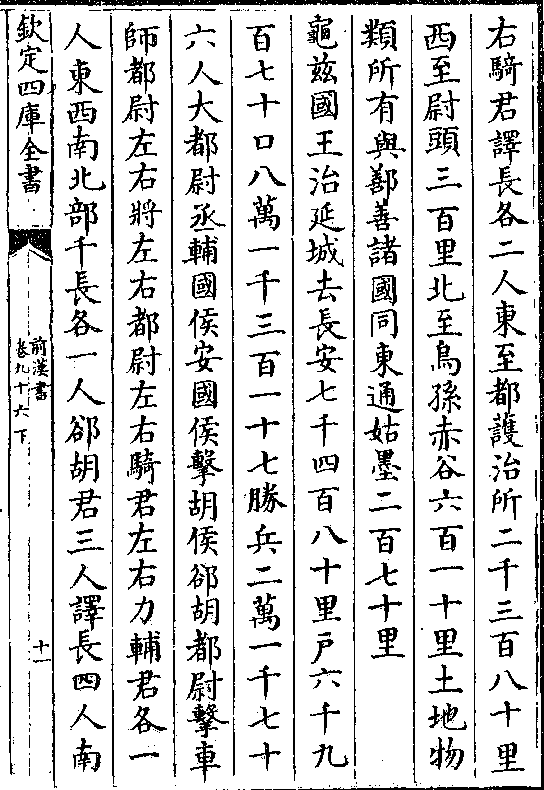 右騎君譯長各二人東至都護治所二千三百八十里
西至尉頭三百里北至烏孫赤谷六百一十里土地物
類所有與鄯善諸國同東通姑墨二百七十里
龜兹國王治延城去長安七千四百八十里戶六千九
百七十口八萬一千三百一十七勝兵二萬一千七十
六人大都尉丞輔國侯安國侯擊胡侯郤胡都尉擊車
師都尉左右將左右都尉左右騎君左右力輔君各一
人東西南北部千長各二人郤胡君三人譯長四人南
欽定四庫全書
前漢書
卷九十六下
十一